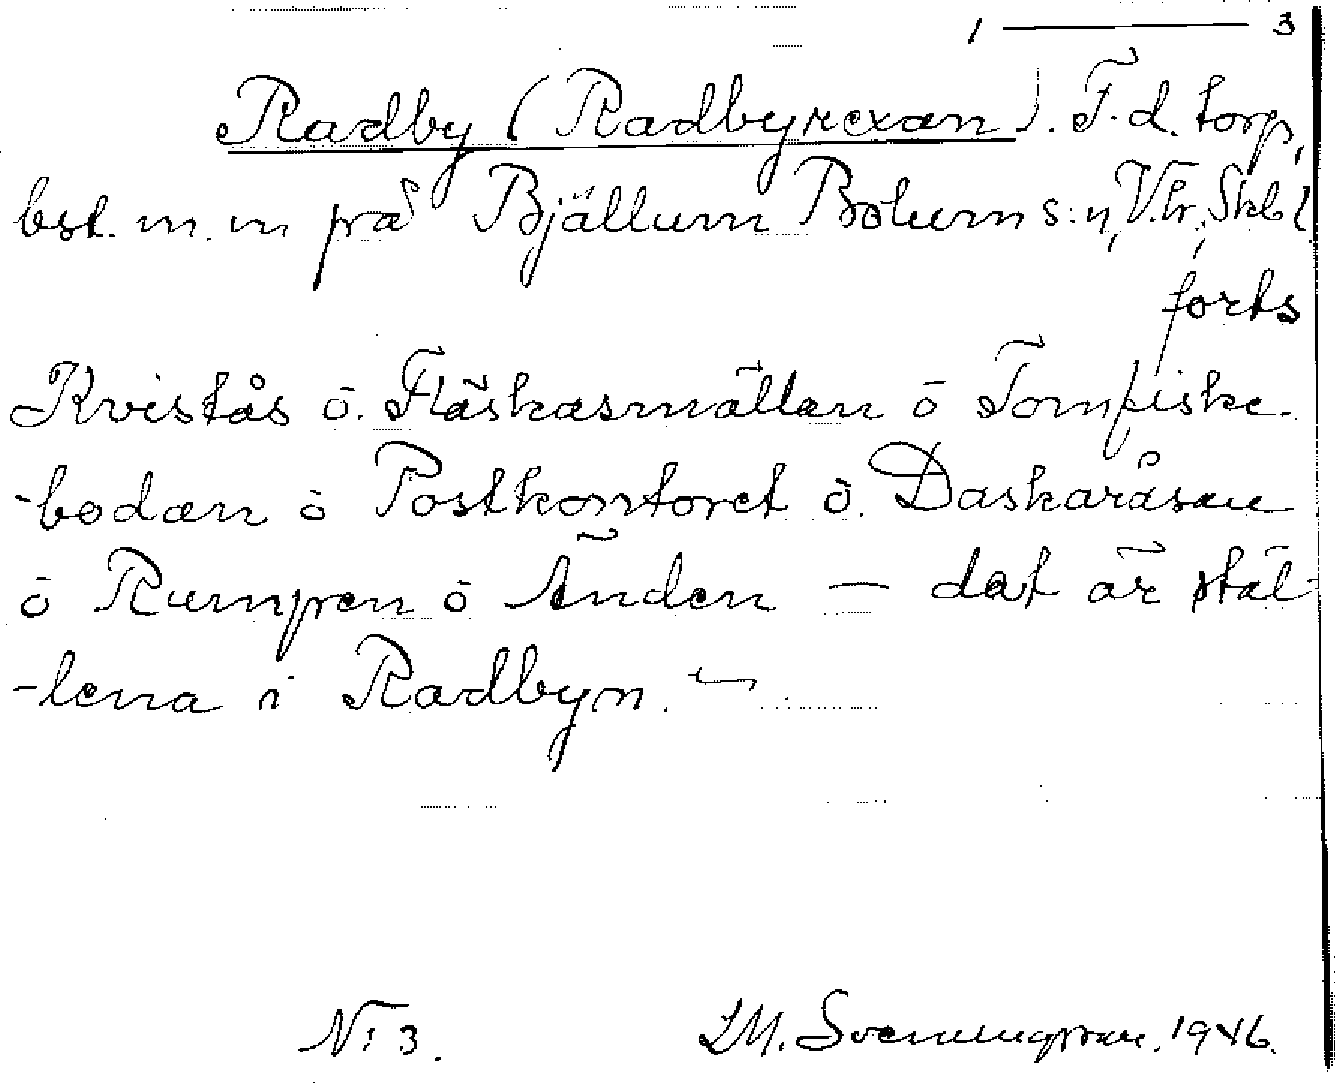 1 — 3
Radby (Radbyrexan). F.d. torp,
bst. m.m på Bjällum Bolum s:n, V.hr; Skbl
forts
Kvistås ō. Fläskasmällan ō Tomfiske-
-bodan ō Postkontoret ō. Daskaråsan
ō Rumpen ō Änden — dat är stäl-
-lena i Radbyn.
N:3. LM. Svenungsson. 1946.